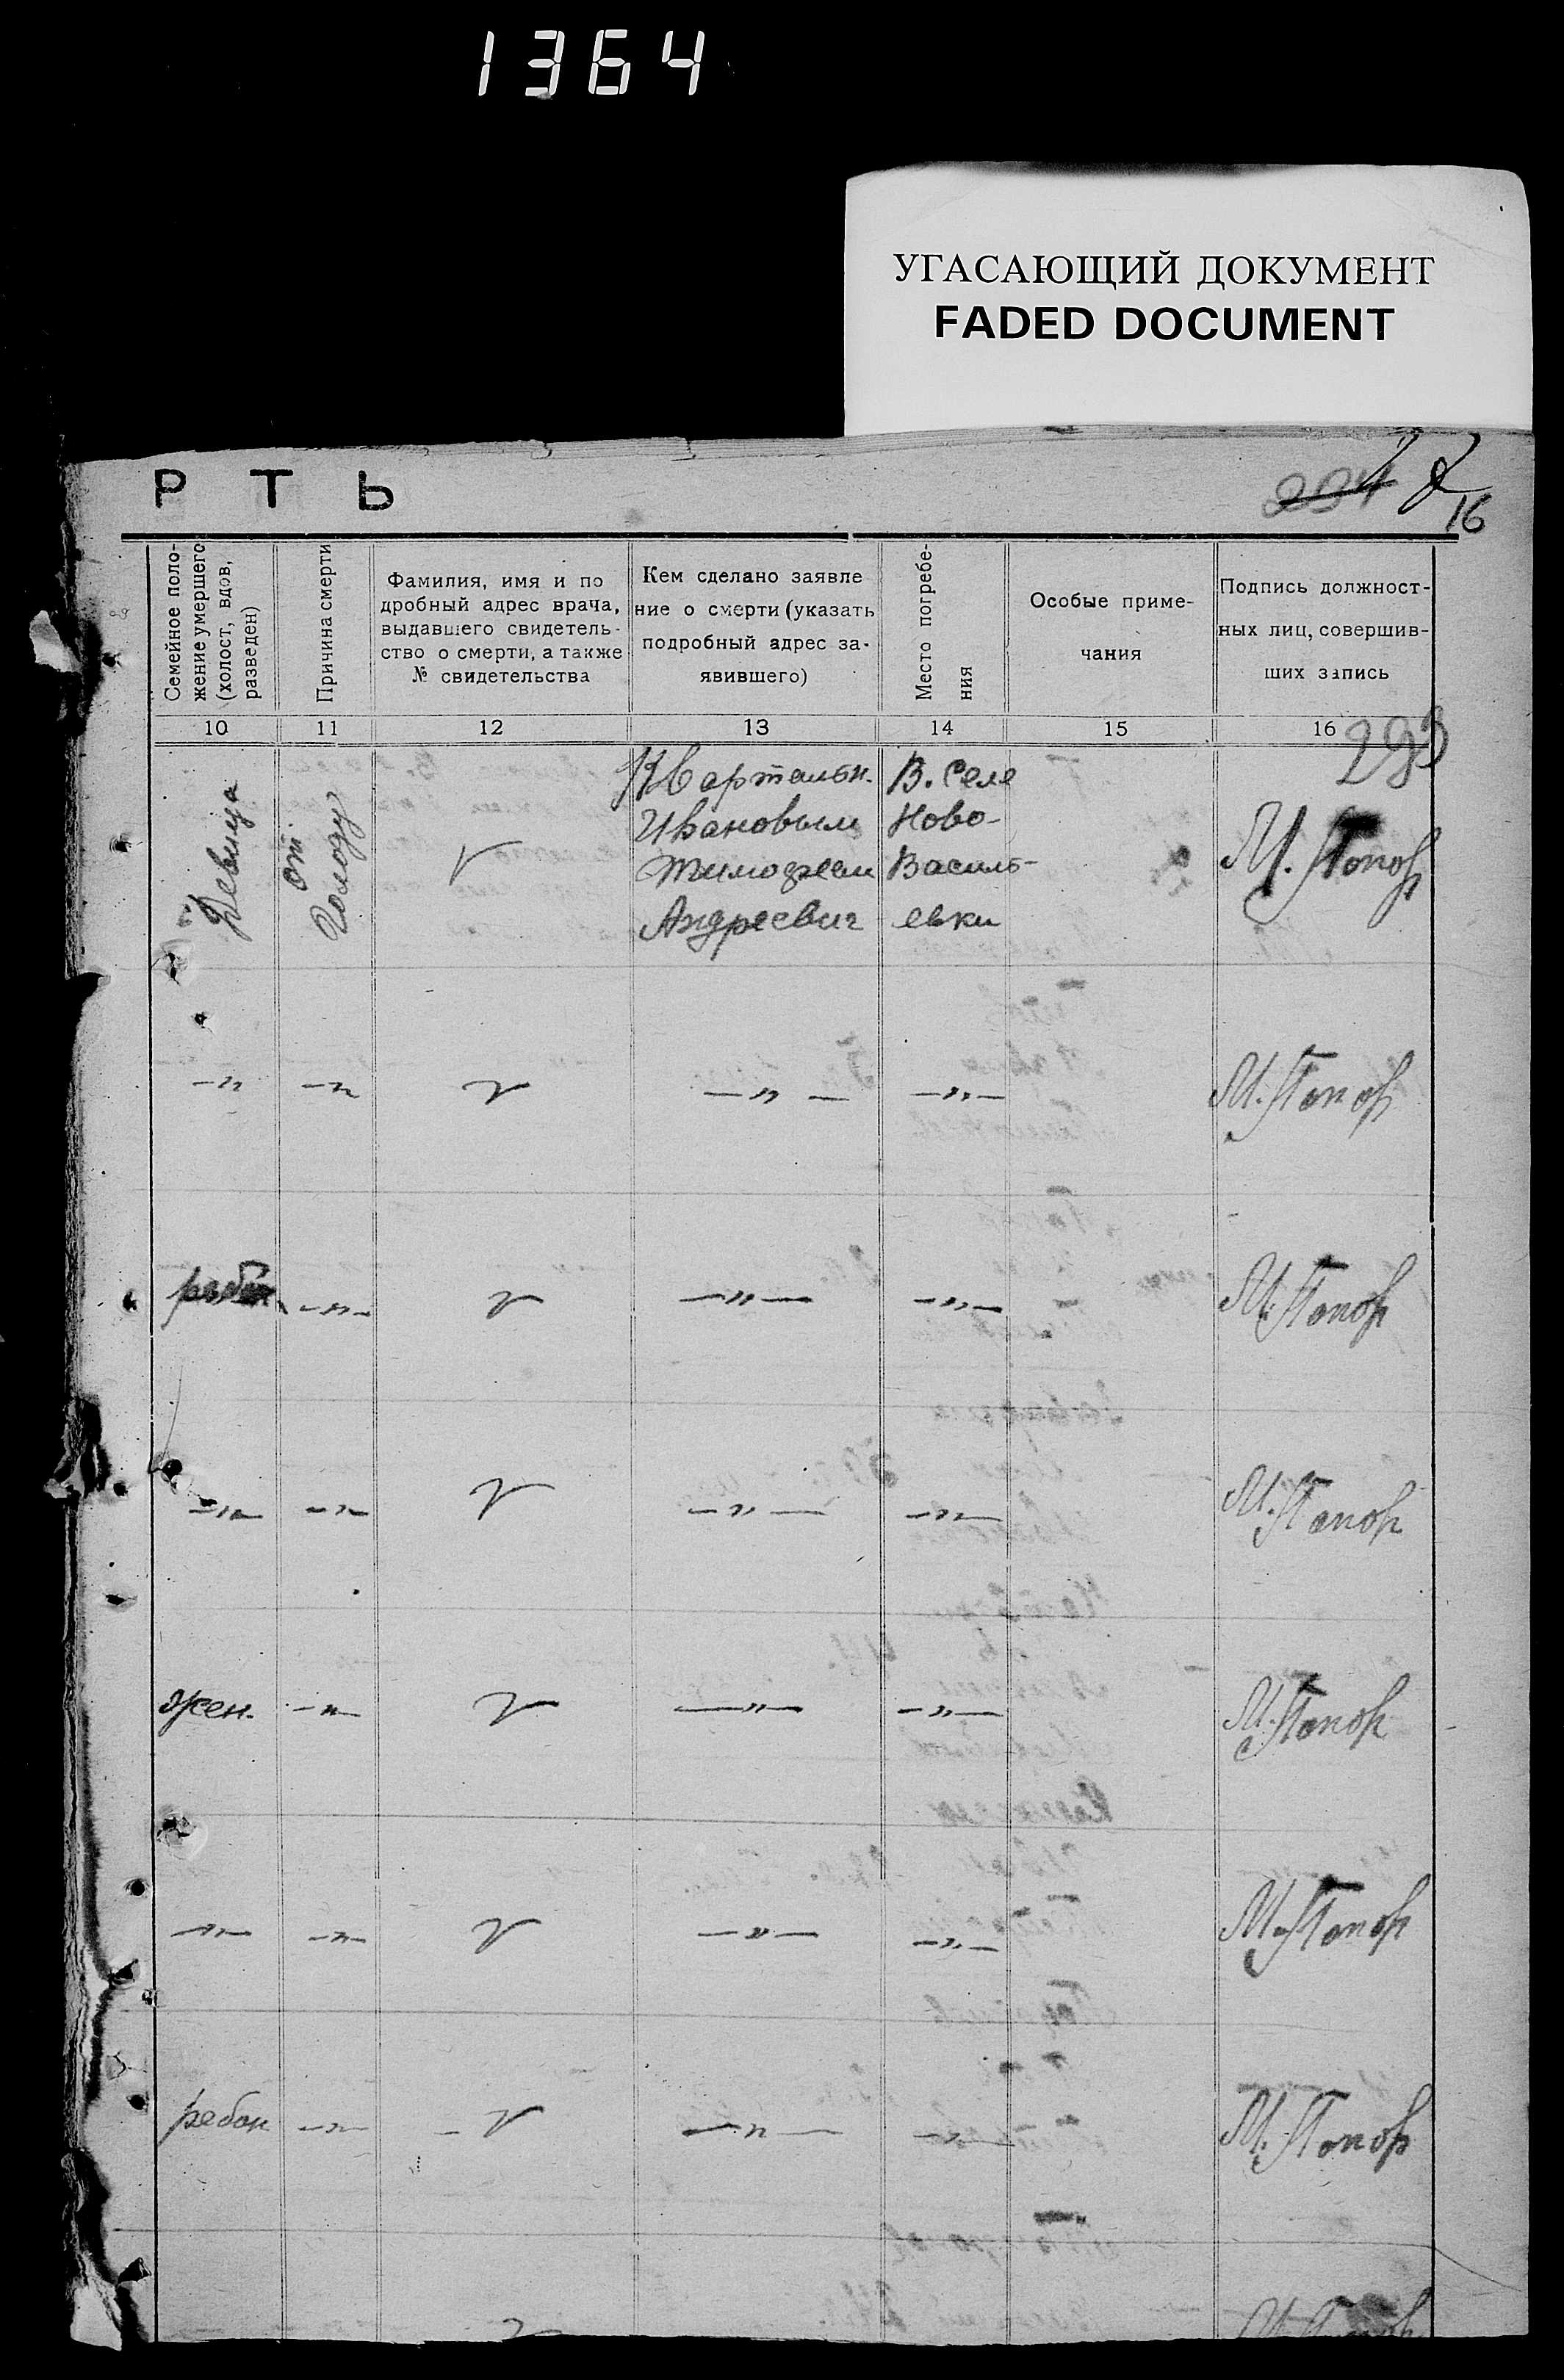 1364
УГАСАЮЩИЙ ДОКУМЕНТ
FADED DOCUMENT
Р Т Ь
234
16
Семейное поло-
жение умершего
(холост, вдов,
разведен)
Причина смерти
Фамилия, имя и по
дробный адрес врача,
выдавшего свидетель-
ство о смерти, а также
№ свидетельства
Кем сделано заявле
ние о смерти (указать
подробный адрес за-
явившего)
Место погребе-
ния
Особые приме-
чания
Подпись должност-
ных лиц, совершив-
ших запись
10 11 12 13 14 15 16
293
Девица
от
Голоду
V
Квартальн.
Ивановым
Тимофеем
Андреевич
В. Селе
Ново-
Василь-
евки
М. Попов
—„ —„ V —„— —„— М. Попов
ребен —„— V —„— —„— М. Попов
—„— —„— V —„— —„— М. Попов
жен. —„— V —„— —„— М. Попов
—„— —„— V —„— —„— М. Попов
ребен —„— V —„— —„— М. Попов